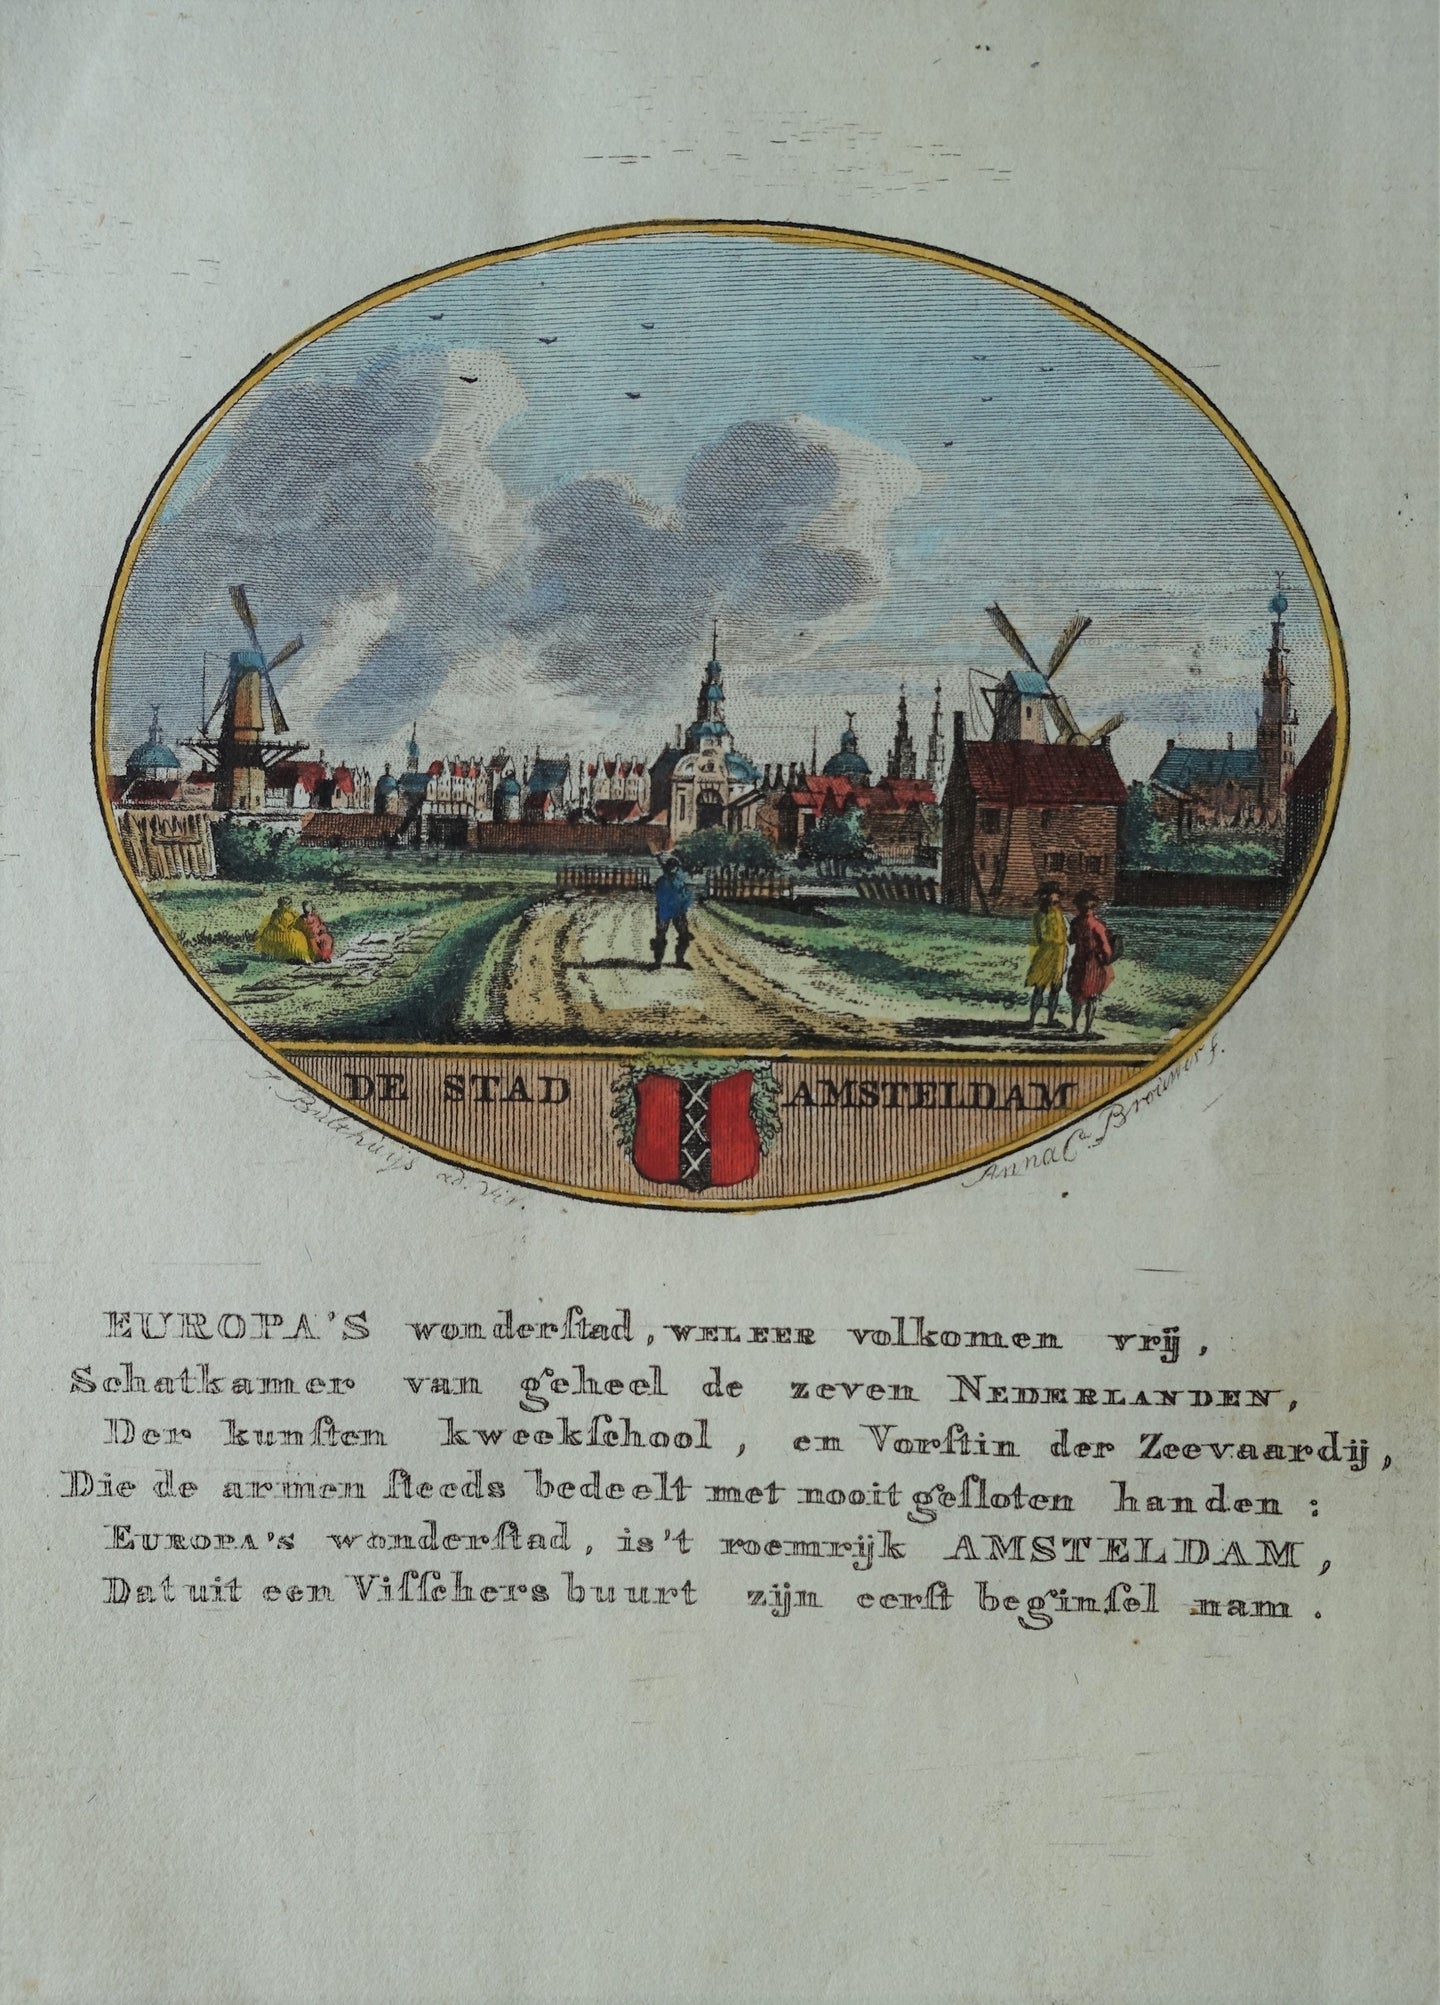 DE STAD AMSTELDAM
J. Bulthuijs ad. viv.
Anna Cª. Brouwer f.
EUROPA'S wonderſtad, WELEER volkomen vrij,
Schatkamer van geheel de zeven NEDERLANDEN,
Der kunſten kweekſchool, en Vorſtin der Zeevaardij,
Die de armen ſteeds bedeelt met nooit geſloten handen:
EUROPA'S wonderſtad, is 't roemrijk AMSTELDAM,
Dat uit een Viſſchers buurt zijn eerſt beginſel nam.